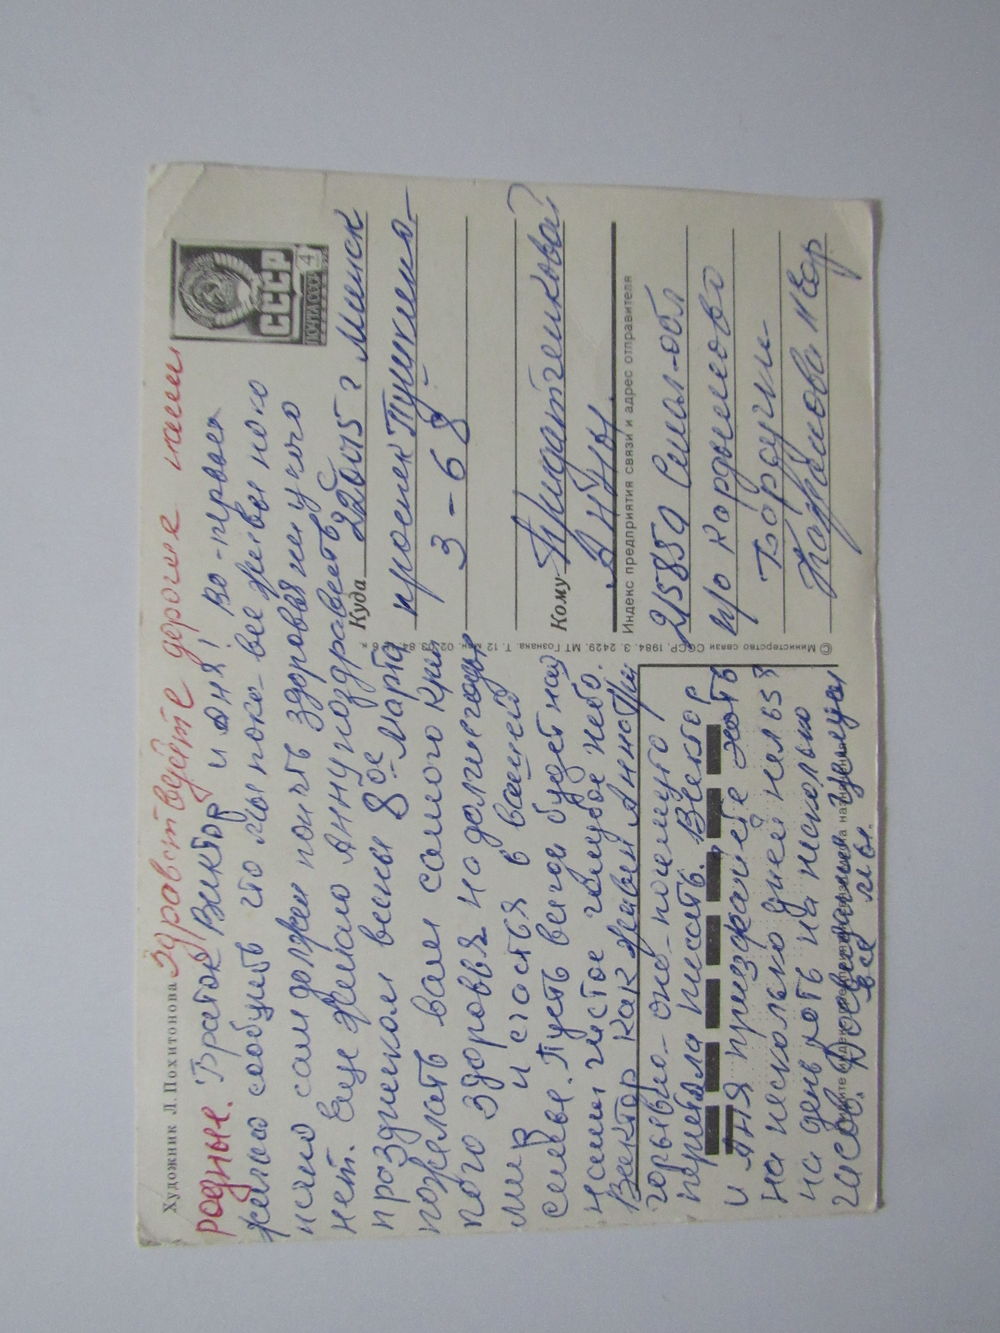 Художник Л. Похитонова
Здравствуйте дорогие наши
родные. Браток Виктор и Аня! Во-первых
желаю сообщить что мы пока-все живы но ко
нечно сам должен понять здоровья ни у кого
нет. Еще желаю Анну поздравить
праздником весны 8ое Марта
пожелать вам самого кре
пого здоровья на долгие годы
мир и счастья в вашей
семье. Пусть всегда будет над
нами чистое голубое небо.
Виектор как живет Анна
горьевна-она почему то
писать. Виектор
и Аня приезжайте хоть
на несколько дней нельзя
на день хоть на несколько
часов. Досвидания целуем
все мы.
ПОЧТА СССР
4
СССР
Куда 220015 г Минск
проспект Пушкина-
3-68
Кому
Индекс предприятия связи и адрес отправителя
215850 Смол-обл
п/о Кардымово
© Министерство связи СССР. 1984. З. 2429. МТ Гознака. Т. 12